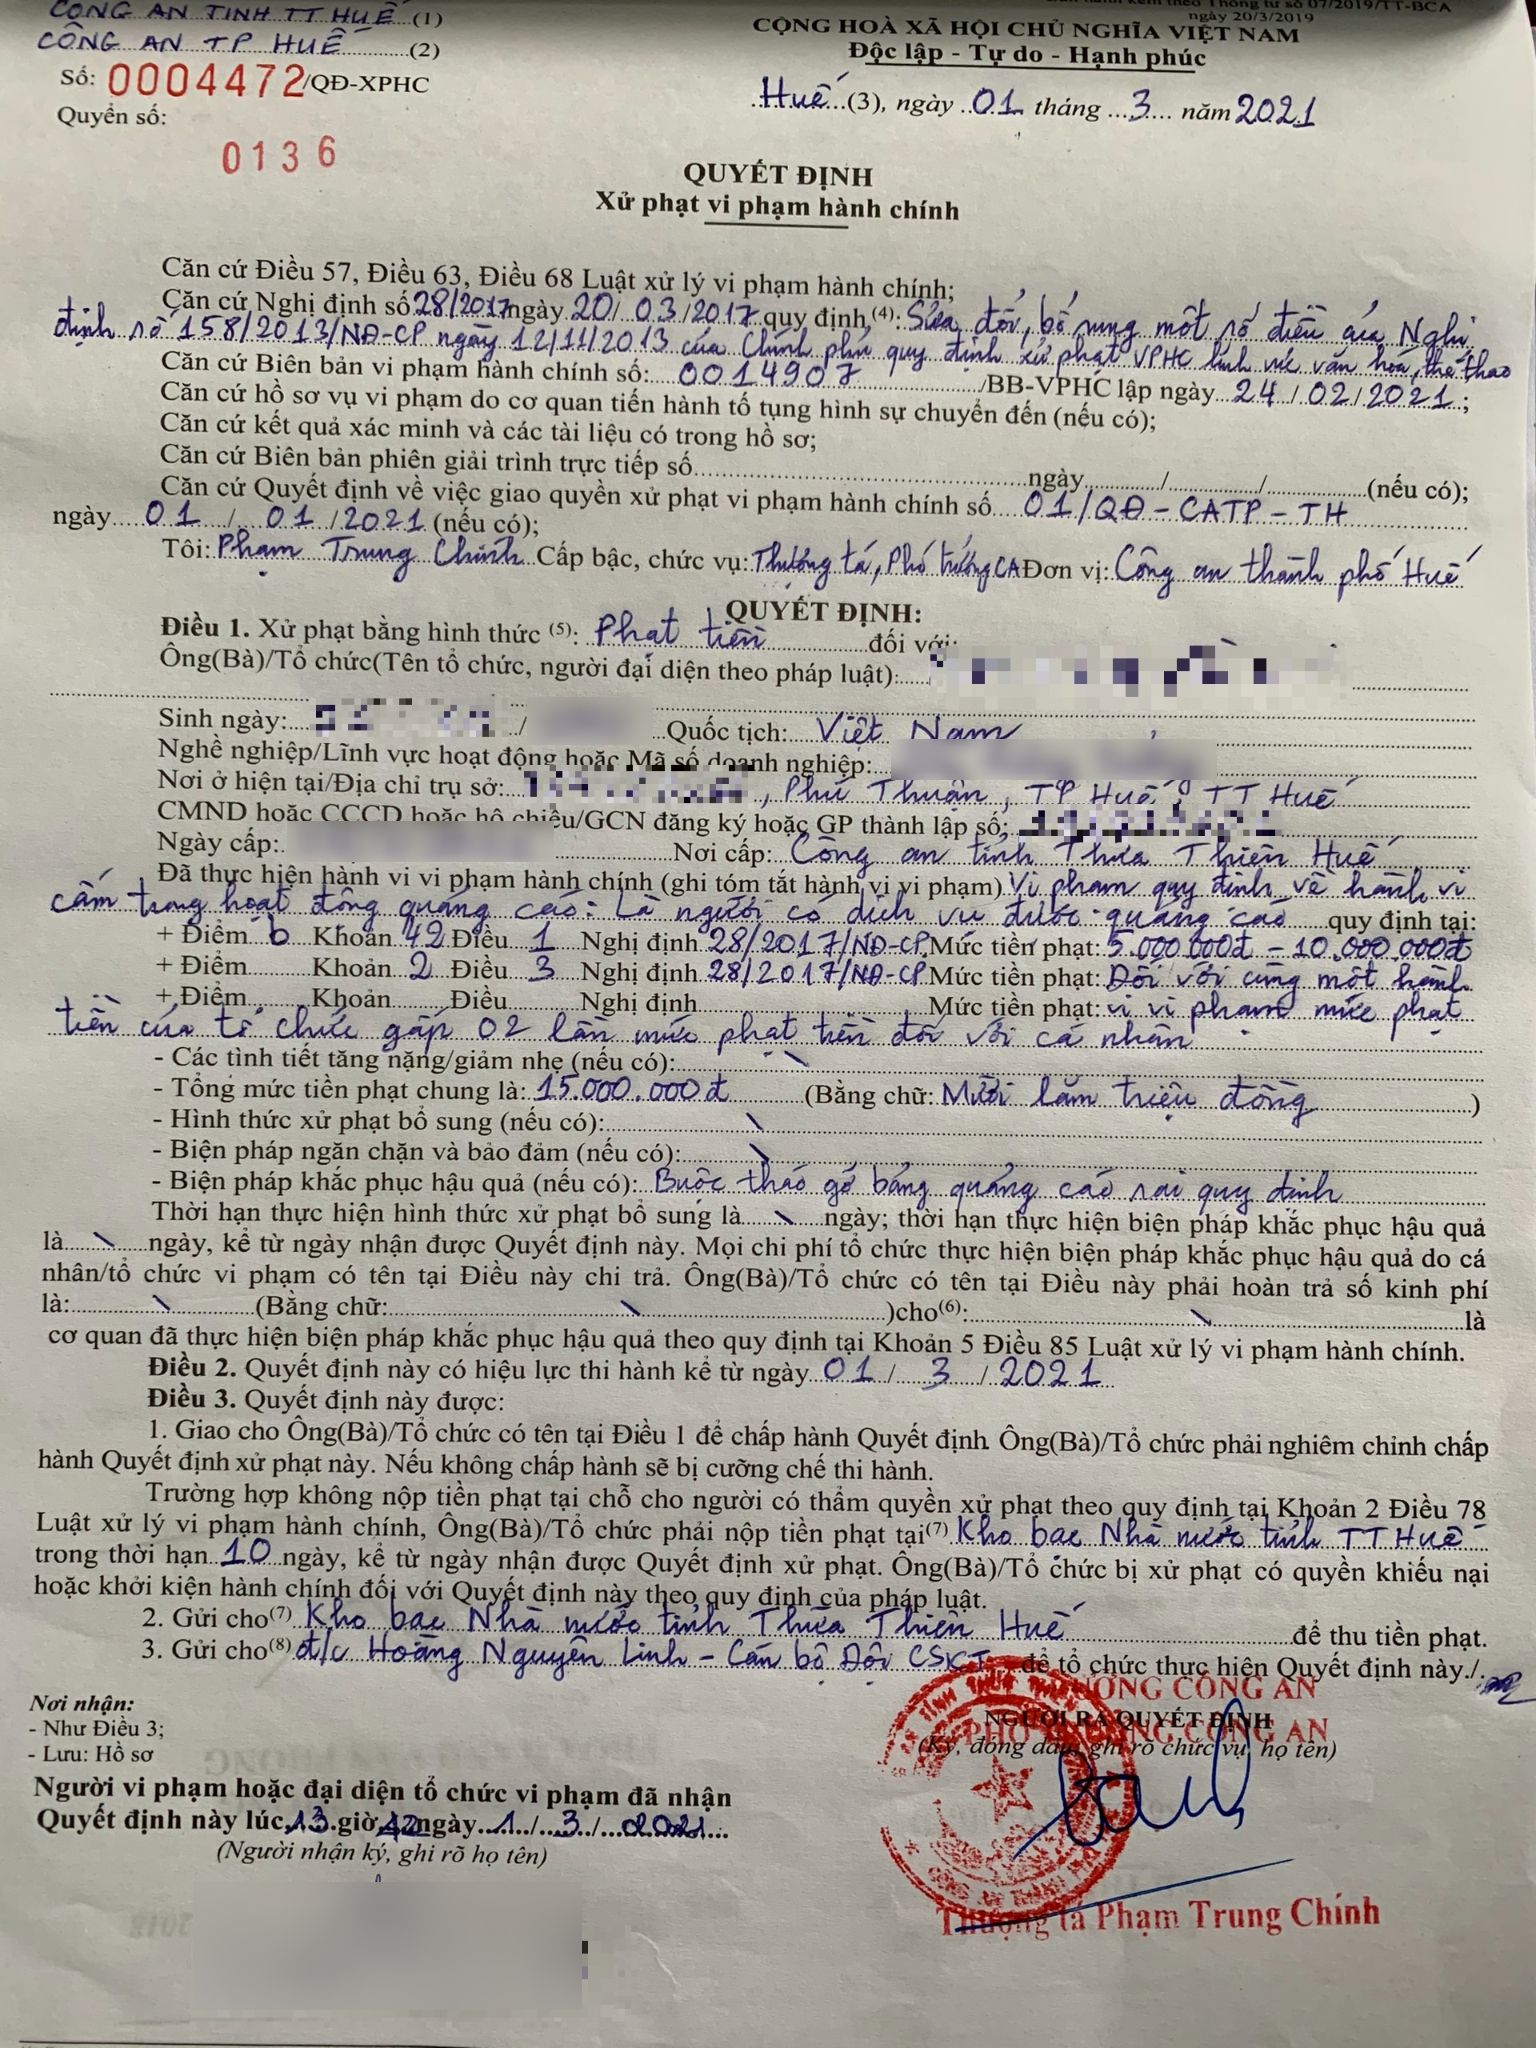 CÔNG AN TỈNH TT HUẾ (1)
CÔNG AN TP HUẾ (2)
Số: 0004472/QĐ-XPHC
Quyển số:
0136
kèm theo Thông tư số 07/2019/TT-BCA
ngày 20/3/2019
CỘNG HOÀ XÃ HỘI CHỦ NGHĨA VIỆT NAM
Độc lập - Tự do - Hạnh phúc
Huế (3), ngày 01 tháng 3 năm 2021
QUYẾT ĐỊNH
Xử phạt vi phạm hành chính
Căn cứ Điều 57, Điều 63, Điều 68 Luật xử lý vi phạm hành chính;
Căn cứ Nghị định số 28/2017 ngày 20/03/2017 quy định (4): Sửa đổi, bổ sung một số điều của Nghị
định số 158/2013/NĐ-CP ngày 12/11/2013 của Chính phủ quy định xử phạt VPHC lĩnh vực văn hóa, thể thao
Căn cứ Biên bản vi phạm hành chính số: 0014907/BB-VPHC lập ngày 24/02/2021;
Căn cứ hồ sơ vụ vi phạm do cơ quan tiến hành tố tụng hình sự chuyển đến (nếu có);
Căn cứ kết quả xác minh và các tài liệu có trong hồ sơ;
Căn cứ Biên bản phiên giải trình trực tiếp số ngày / / (nếu có);
Căn cứ Quyết định về việc giao quyền xử phạt vi phạm hành chính số 01/QĐ-CATP-TH
ngày 01/01/2021 (nếu có);
Tôi: Phạm Trung Chính Cấp bậc, chức vụ: Thượng tá, Phó trưởng CA Đơn vị: Công an thành phố Huế
QUYẾT ĐỊNH:
Điều 1. Xử phạt bằng hình thức (5): Phạt tiền đối với:
Ông(Bà)/Tổ chức(Tên tổ chức, người đại diện theo pháp luật):
Sinh ngày: / Quốc tịch: Việt Nam
Nghề nghiệp/Lĩnh vực hoạt động hoặc Mã số doanh nghiệp:
Nơi ở hiện tại/Địa chỉ trụ sở: , Phú Thuận, TP Huế, TT Huế
CMND hoặc CCCD hoặc hộ chiếu/GCN đăng ký hoặc GP thành lập số:
Ngày cấp: Nơi cấp: Công an tỉnh Thừa Thiên Huế
Đã thực hiện hành vi vi phạm hành chính (ghi tóm tắt hành vi vi phạm) Vi phạm quy định về hành vi
cấm trong hoạt động quảng cáo: Là người có dịch vụ được quảng cáo quy định tại:
+ Điểm b Khoản 42 Điều 1 Nghị định 28/2017/NĐ-CP. Mức tiền phạt: 5.000.000đ - 10.000.000đ
+ Điểm Khoản 2 Điều 3 Nghị định 28/2017/NĐ-CP. Mức tiền phạt: Đối với cùng một hành
+ Điểm Khoản Điều Nghị định Mức tiền phạt: vi vi phạm mức phạt
tiền của tổ chức gấp 02 lần mức phạt tiền đối với cá nhân
- Các tình tiết tăng nặng/giảm nhẹ (nếu có): \
- Tổng mức tiền phạt chung là: 15.000.000đ (Bằng chữ: Mười lăm triệu đồng)
- Hình thức xử phạt bổ sung (nếu có): \
- Biện pháp ngăn chặn và bảo đảm (nếu có): \
- Biện pháp khắc phục hậu quả (nếu có): Buộc tháo gỡ bảng quảng cáo sai quy định
Thời hạn thực hiện hình thức xử phạt bổ sung là \ ngày; thời hạn thực hiện biện pháp khắc phục hậu quả
là \ ngày, kể từ ngày nhận được Quyết định này. Mọi chi phí tổ chức thực hiện biện pháp khắc phục hậu quả do cá
nhân/tổ chức vi phạm có tên tại Điều này chi trả. Ông(Bà)/Tổ chức có tên tại Điều này phải hoàn trả số kinh phí
là: \ (Bằng chữ: \ )cho(6): \ là
cơ quan đã thực hiện biện pháp khắc phục hậu quả theo quy định tại Khoản 5 Điều 85 Luật xử lý vi phạm hành chính.
Điều 2. Quyết định này có hiệu lực thi hành kể từ ngày 01/3/2021
Điều 3. Quyết định này được:
1. Giao cho Ông(Bà)/Tổ chức có tên tại Điều 1 để chấp hành Quyết định. Ông(Bà)/Tổ chức phải nghiêm chỉnh chấp
hành Quyết định xử phạt này. Nếu không chấp hành sẽ bị cưỡng chế thi hành.
Trường hợp không nộp tiền phạt tại chỗ cho người có thẩm quyền xử phạt theo quy định tại Khoản 2 Điều 78
Luật xử lý vi phạm hành chính, Ông(Bà)/Tổ chức phải nộp tiền phạt tại(7) Kho bạc Nhà nước tỉnh TT Huế
trong thời hạn 10 ngày, kể từ ngày nhận được Quyết định xử phạt. Ông(Bà)/Tổ chức bị xử phạt có quyền khiếu nại
hoặc khởi kiện hành chính đối với Quyết định này theo quy định của pháp luật.
2. Gửi cho(7) Kho bạc Nhà nước tỉnh Thừa Thiên Huế để thu tiền phạt.
3. Gửi cho(8) đ/c Hoàng Nguyên Linh - Cán bộ Đội CSKT để tổ chức thực hiện Quyết định này./.
TRƯỞNG CÔNG AN
NGƯỜI RA QUYẾT ĐỊNH
PHÓ TRƯỞNG CÔNG AN
(Ký, đóng dấu, ghi rõ chức vụ, họ tên)
Nơi nhận:
- Như Điều 3;
- Lưu: Hồ sơ
Người vi phạm hoặc đại diện tổ chức vi phạm đã nhận
Quyết định này lúc 13 giờ 42 ngày 1/3/2021
(Người nhận ký, ghi rõ họ tên)
Thượng tá Phạm Trung Chính